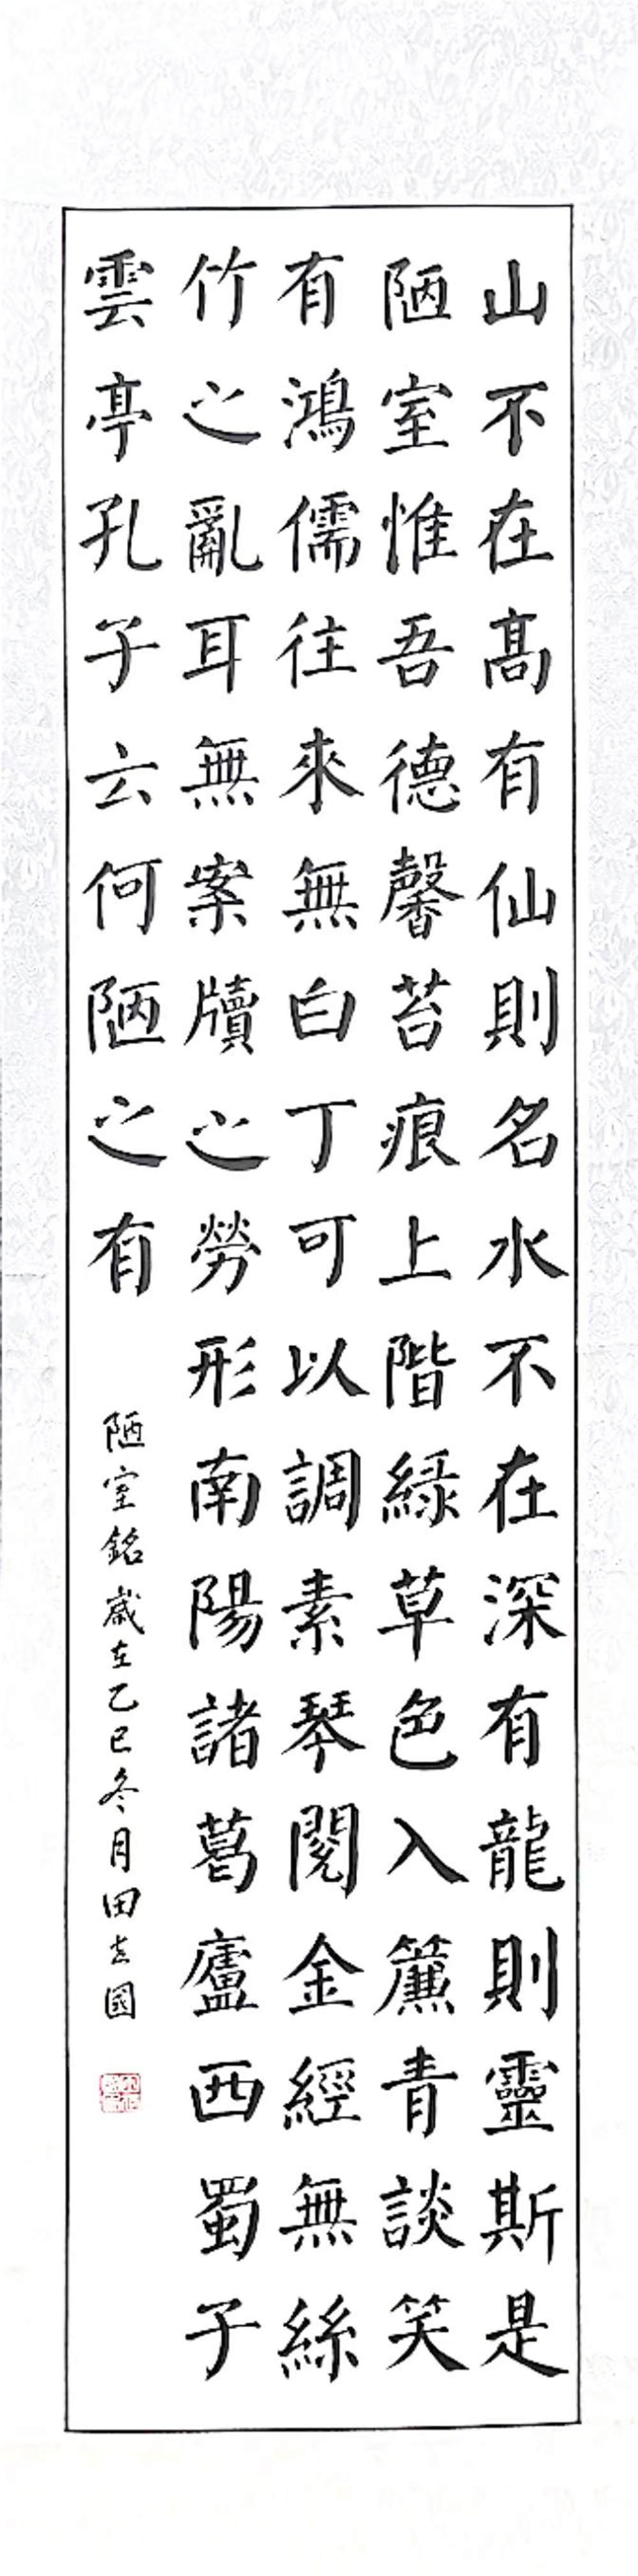 山不在高有仙則名水不在深有龍則靈斯是
陋室惟吾德馨苔痕上階緑草色入簾青談笑
有鴻儒往來無白丁可以調素琴閱金經無絲
竹之亂耳無案牘之勞形南陽諸葛廬西蜀子
雲亭孔子云何陋之有
陋室銘歲在乙巳冬月田志國